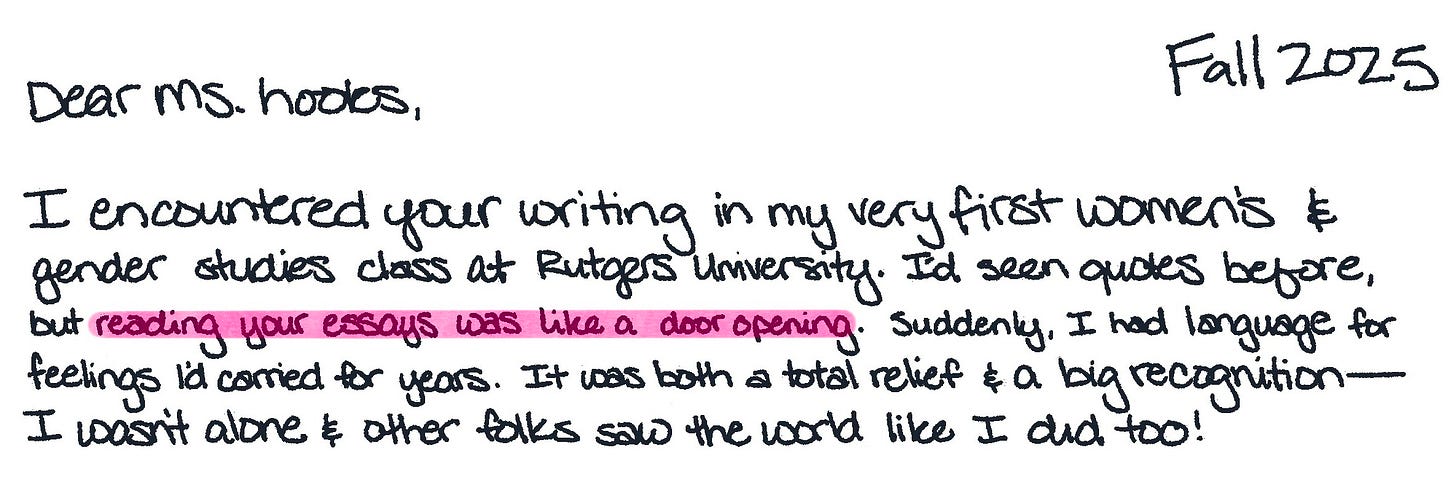 Fall 2025
Dear Ms. hooks,
I encountered your writing in my very first women's &
gender studies class at Rutgers University. I'd seen quotes before,
but reading your essays was like a door opening. Suddenly, I had language for
feelings I'd carried for years. It was both a total relief & a big recognition—
I wasn't alone & other folks saw the world like I did too!